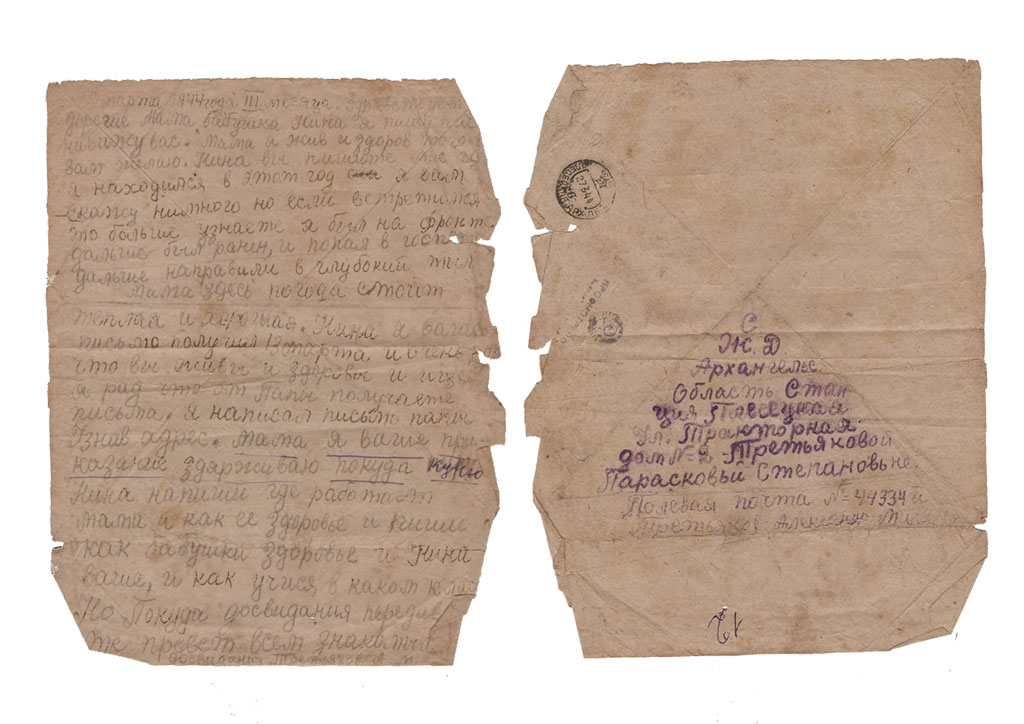 марта 1944 года III месяца. Здравствуйте
дорогие мама бабушка Нина я пишу
ненвижу вас. Мама я жив и здоров того и
вам желаю. Нина вы пишите мне где
я находился в этот год я вам
скажу нимного но если встретимся
то больше узнаете я был на фронте
дальше был ранен, и попал в госпит
дальше направили в глубокий тыл
Мама здесь погода стоит
теплая и хорошая. Нина я ваше
письмо получил марта и очень
что вы живы и здоровы и еще
а рад что от Папы получаете
письма. я написал письмо папи
Узнав адрес. Мама я ваше при
казание здярживаю покуда курю
Нина напиши где работает
мама и как ее здоровье и пиши
как бабушки здоровье и Нина
ваше, и как учися в каком клас
Но Покуда досвидания передав
те превет всем знакомым
досвидания Третьяков А. М.
27.3.44
С
Ж. Д
Архангельс
Область Стан
ция Плесецкая
Ул. Тракторная
дом № 2 Третьяковой
Парасковьи Степановьне
Полевая почта № 44334 и
Третьяков Александр
12